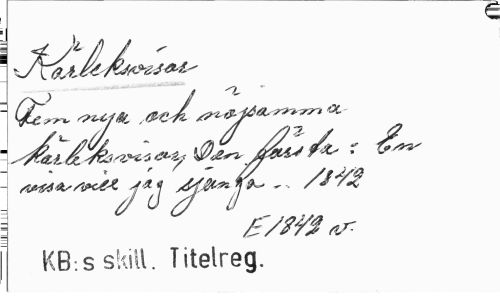 Kärleksvisor
Fem nya och nöjsamma
kärleksvisor, Den första: En
visa vill jag sjunga .. 1842
E 1842 v.
KB:s skill. Titelreg.